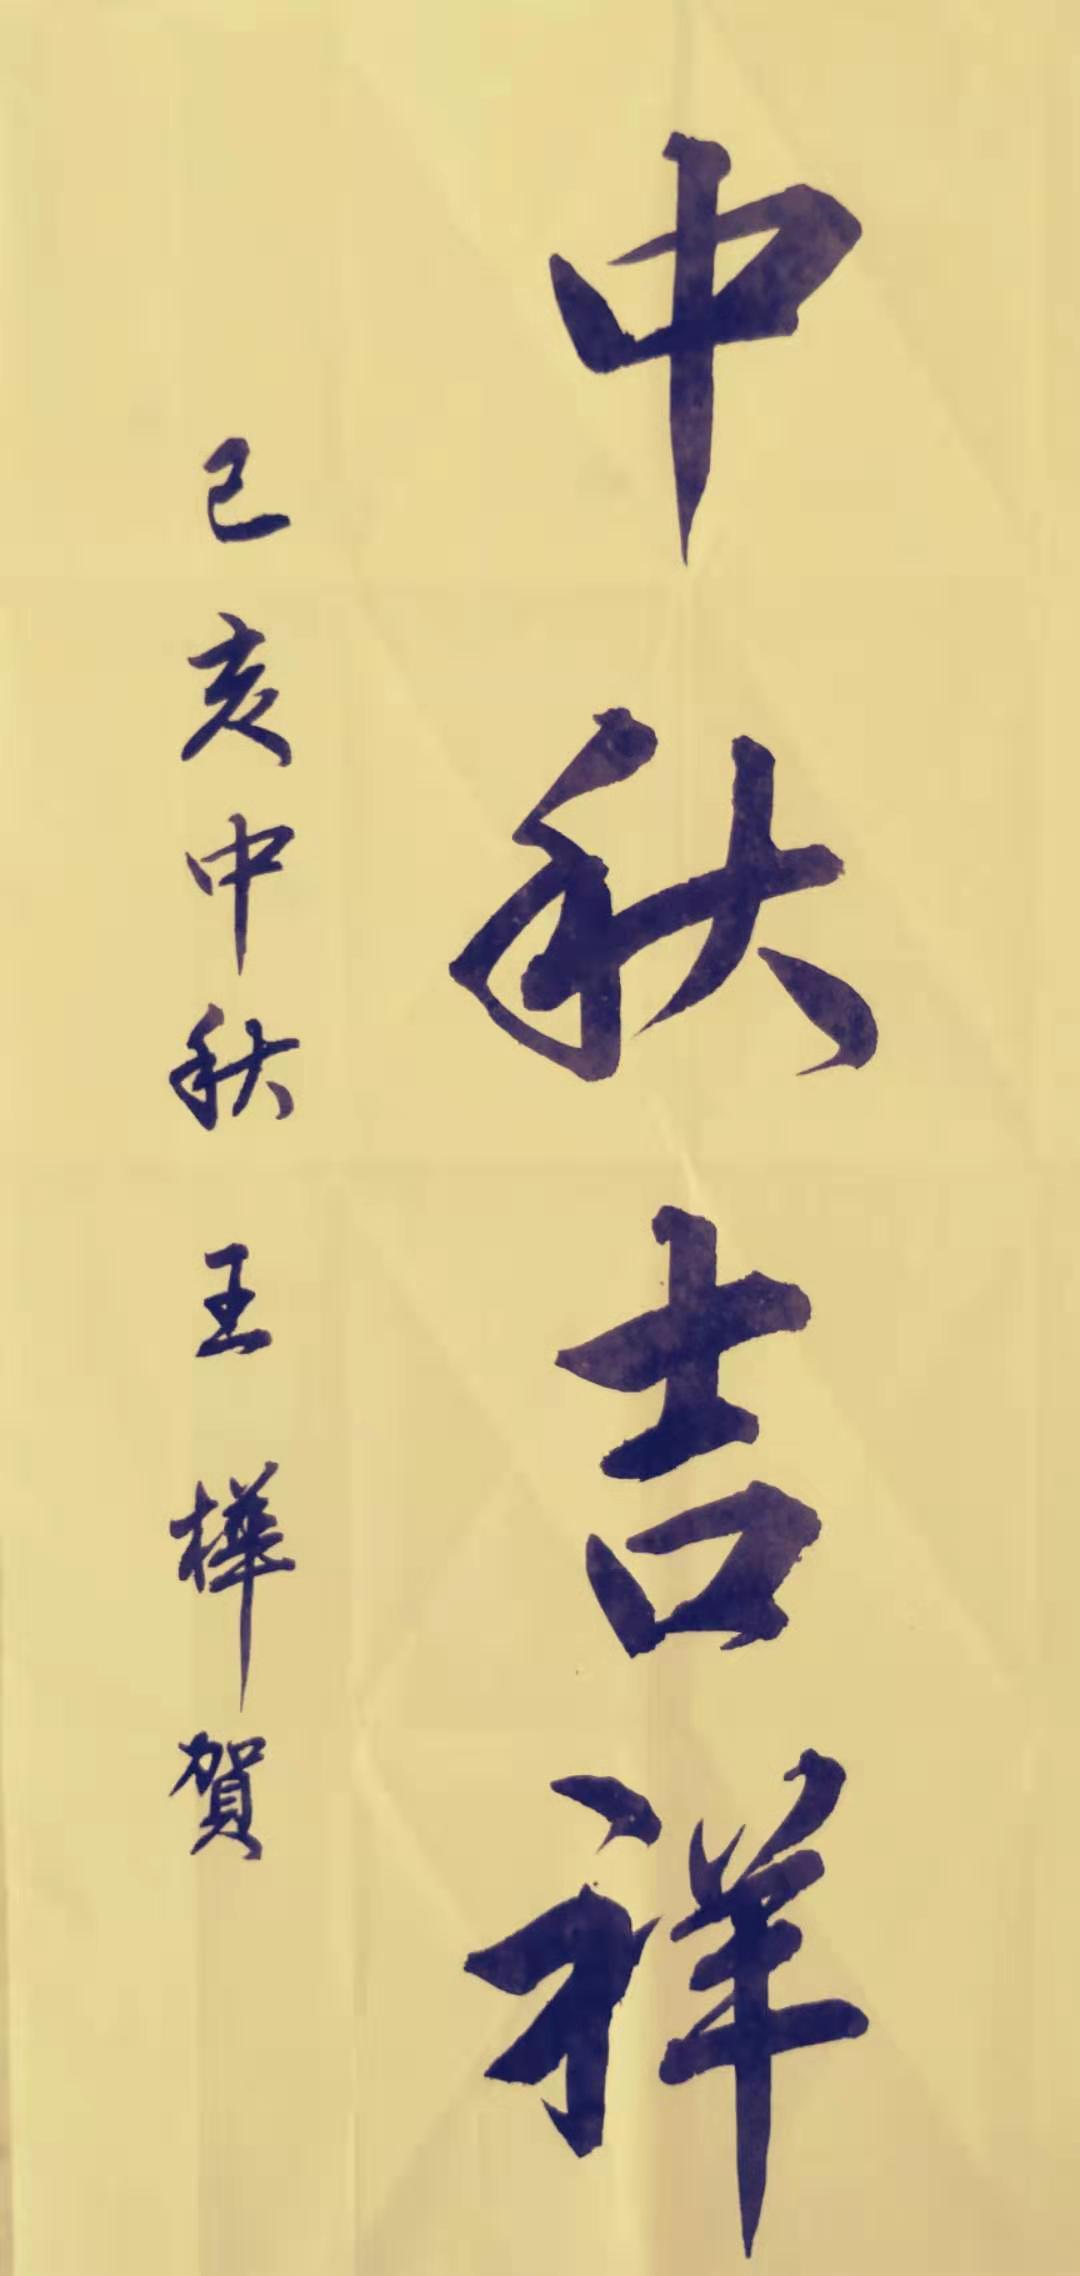 中秋吉祥
己亥中秋王樺賀